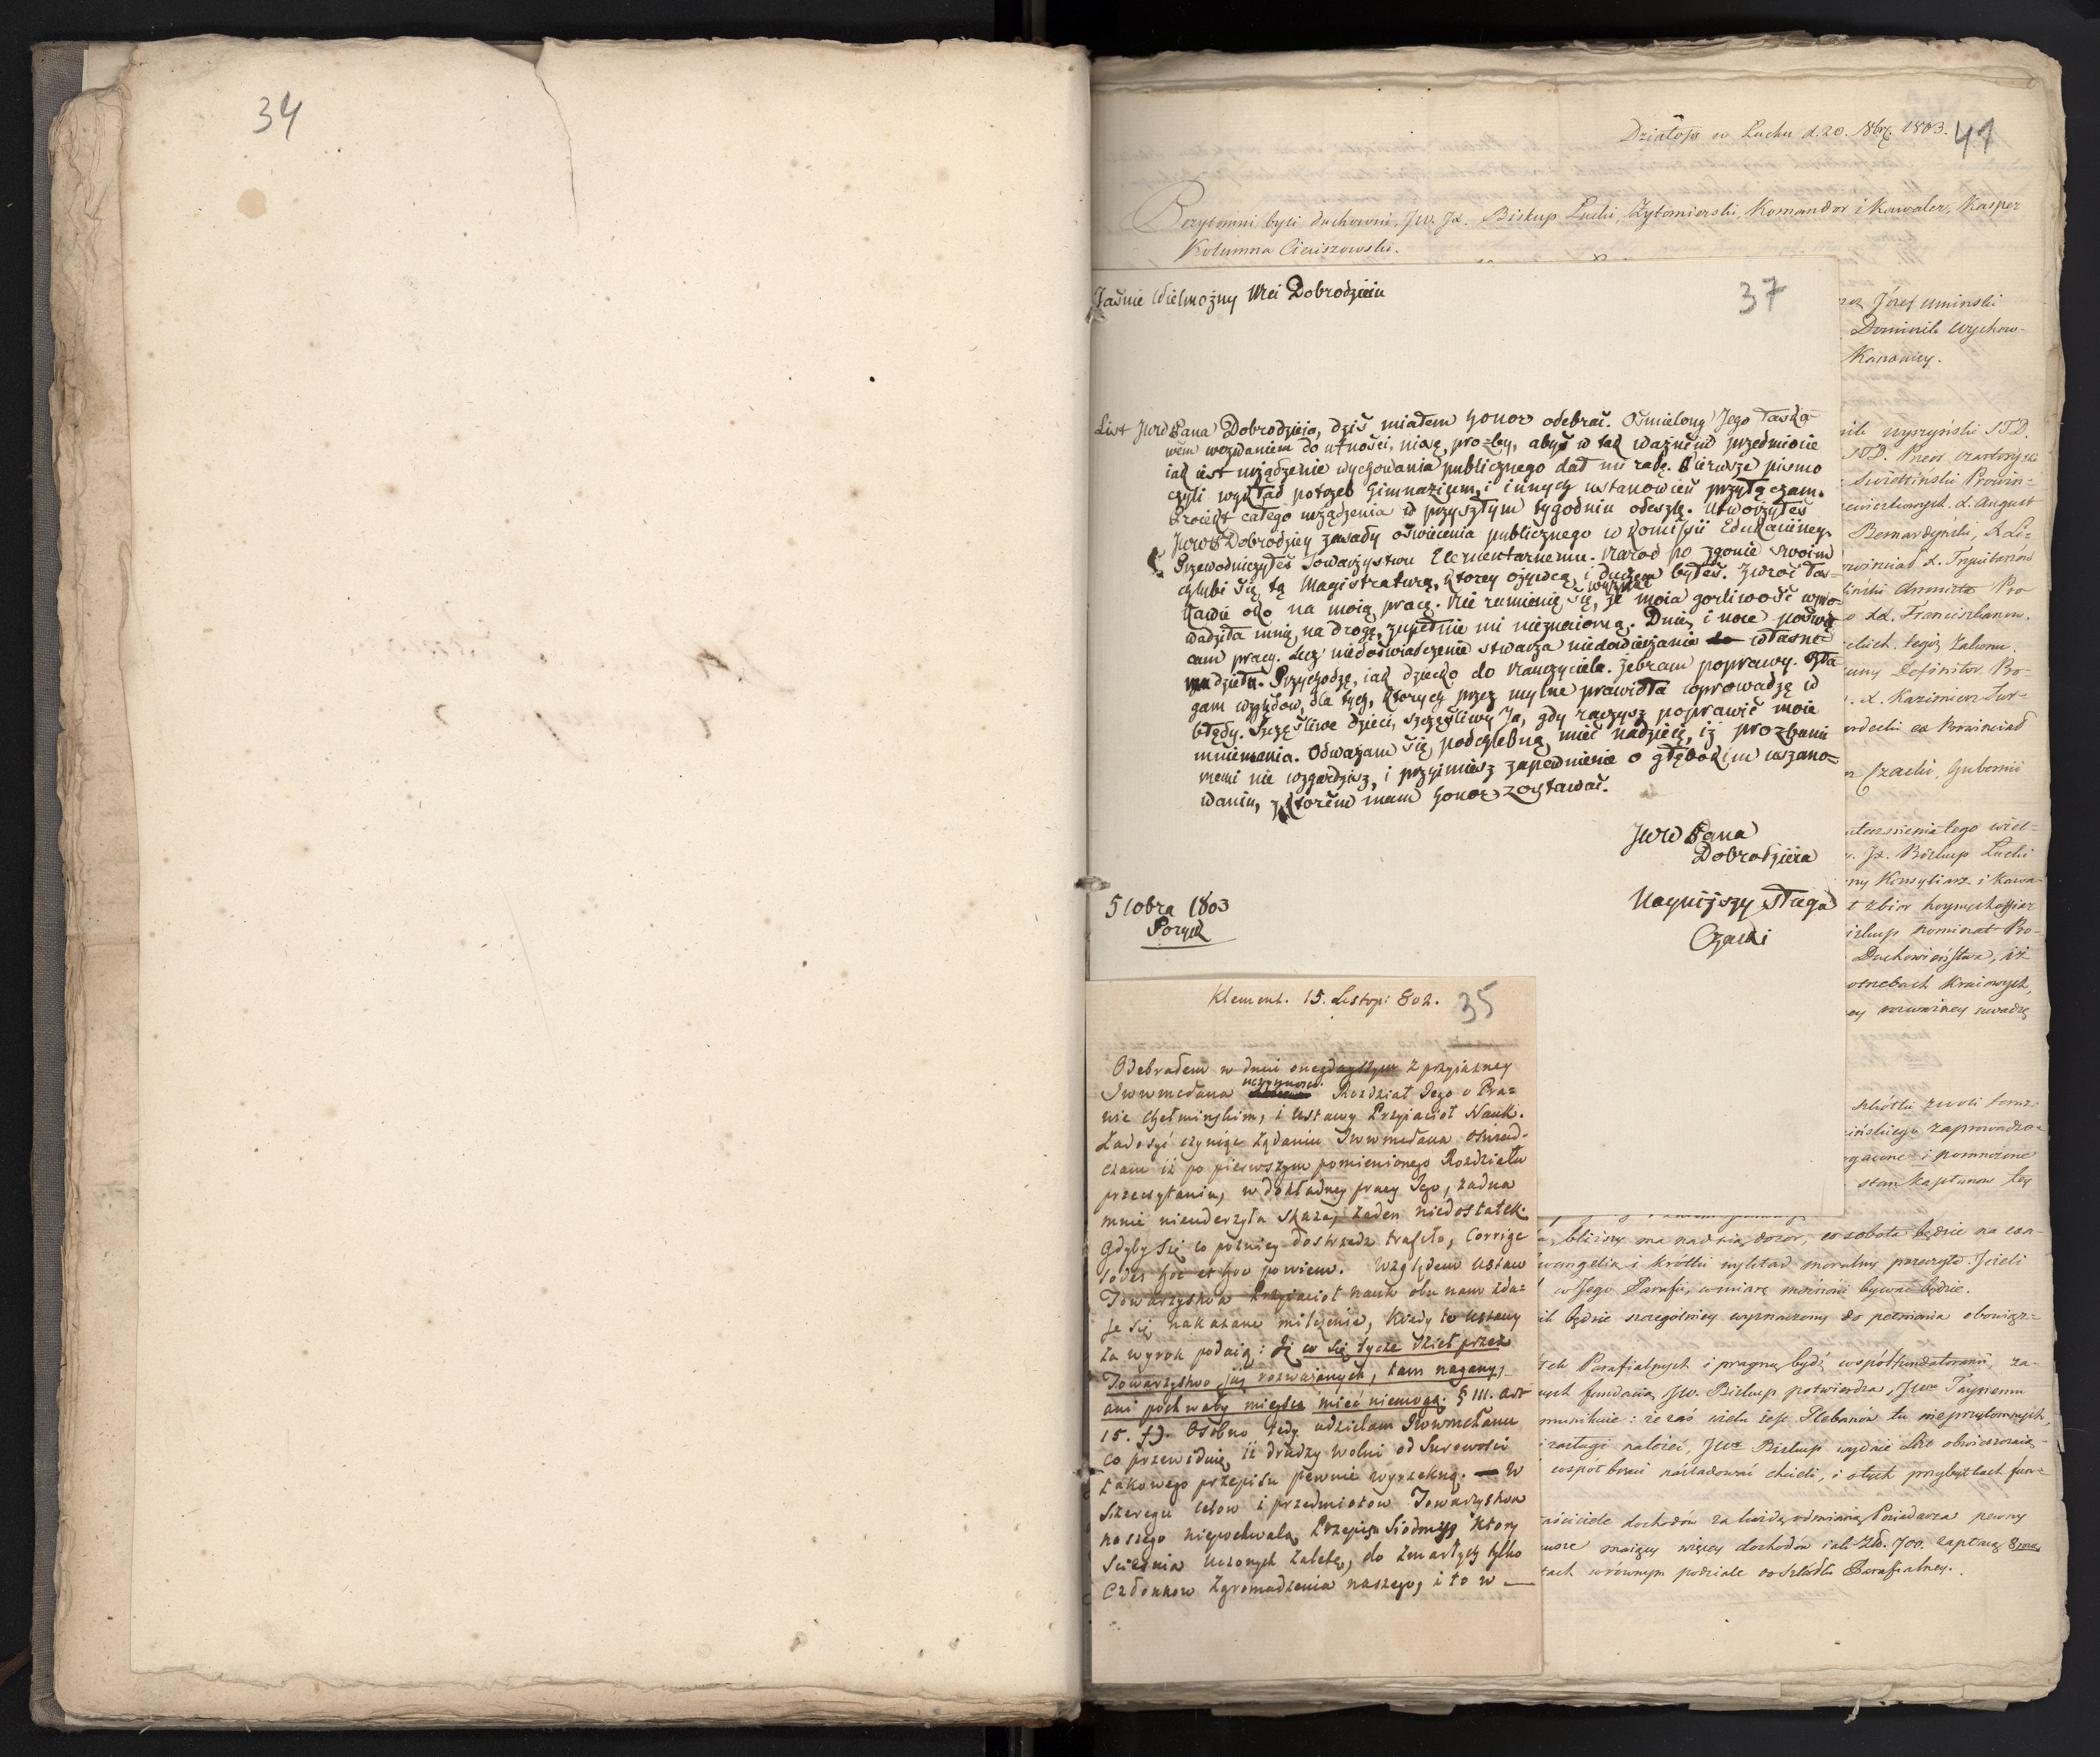 34
Działo się w Łucku d. 20. 8bra 1803. 41
Przytomni byli duchowni, JW. JX. Biskup Łucki, Żytomierski, Komandor i Kawaler, Kasper
Kolumna Cieciszowski.
37
Jaśnie Wielmożny Mci Dobrodzieiu
List JWW Pana Dobrodzieia, dziś miałem honor odebrać. Ośmielony Jego łaska-
wem wezwaniem do ufności, niosę prozby, abyś w tak ważnem przedmiocie
iak iest urządzenie wychowania publicznego dał mi radę. Pierwsze pismo
czyli wykład potrzeb Gimnazium, i innych ustanowień przyłączam.
Proiekt całego urządzenia w przyszłym tygodniu odeszlę. Utworzyłeś
JWWP Dobrodziey zasady oświecenia publicznego w Komissii Edukaciiney.
Przewodniczyłeś Towarzystwu Elementarnemu. Narod po zgonie swoim
chlubi się tą Magistraturą, ktorey ożywcą i duchem byłeś. Zwroć łas-
kawie oko na moią pracę. Nie rumienię się wyznać, że moia gorliwość wpro-
wadziła mnię, na drogę, zupełnie mi nieznaiomą. Dnie, i noce poświę-
cam pracy. Lecz niedoświadczenie stwarza niedowierzanie własne-
mu dziełu. Przychodzę, iak dziecko do Nauczyciela. Żebram poprawy. Bła-
gam względow, dla tych, ktorych przez mylne prawidła wprowadzę w
błędy. Szczęśliwe dzieci, szczęśliwy Ja, gdy raczysz poprawić moie
mniemania. Odważam się, podchlebną mieć nadzieię, iż prozbami
memi nie wzgardzisz, i przyimiesz zapewnienie o głębokim uszano-
waniu, z ktorem mam honor zostawać.
JWW Pana
Dobrodzieia
Nayniższy sługa
Czacki
5 10bra 1803
Poryck
Klement. 15. Listop: 802. 35
Odebrałem w dniu onegdayszym z przyiazney
Jwwmcdana uczynnosci Rozdział Jego o Pra-
wie Chełminskim, i Ustawy Przyiacioł Nauk.
Zadosyć czyniąc żądaniu Jwwmcdana oswiad-
czam iż po pierwszym pomienionego Rozdziału
przeczytaniu, w dokładney pracy Jego, żadna
mnie nieuderzyła skaza, żaden niedostatek.
Gdyby się co pozniey dostrzedz trafiło, Corrige
sodes hoc et hoc powiem. Względem Ustaw
Towarzystwa Przyiacioł nauk obu nam zda-
je się nakazane milczenie, kiedy te Ustawy
za wyrok podaią: Iż co się tycze dzieł przez
Towarzystwo już rozważanych, tam nagany,
ani pochwały mieysca mieć niemogą. § III. art
15. f). Osobno tedy udzielam Jwwmcdanu
co przewidnię, iż drudzy wolni od surowości
takowego przepisu pewnie wyrzekną. — W
szeregu celow i przedmiotow Towarzystwa
naszego niepochwalą Przepisu siodmego ktory
scieśnia uczonych zaletę, do zmarłych tylko
członkow Zgromadzenia naszego, i to w —
Józef Uminski
Dominik Wychow-
Kanonicy.
Wyszyński STD.
STD. Prior
Prowin-
X. August
Bernardyński, X Li-
X. Trynitarzów
Pro
XX. Franciszkanow.
tegoż Zakonu.
Definitor Pro-
X. Kazimierz Jur-
ex Prowinciał
Czacki, Gubernii
tego wiel-
Jx. Biskup Łucki
Konsyliarz i Kawa-
zbior hoynych ofiar
Biskup nominat Pro-
Duchowieństwa, iż
potrzebach kraiowych,
szkółki
zaprowadzo-
i pomnożone
stan kapłanow tey
bliższy ma nad nią dozor, co sobota będzie na
i krótki wykład moralny przeczyta. Jeżeli
w Jego Parafii, w miarę możności bywać będzie.
będzie szczególniey wyznaczony do pełnienia obowiąz-
Parafialnych i pragnąc bydź współfundatorami, za-
fundacią JW. Biskup potwierdza, JWu Taynemu
: że zaś wielu jest Plebanów tu nieprzytomnych,
zasługi należeć, JWx Biskup wydaie List obwieszczaią-
współbraci naśladować chcieli, i o tych przybytkach fun-
dochodów za każdą odmianą Posiadacza pewny
maiący więcey dochodów iak Zł. 700. zapłacą
w równym podziale do szkółki Parafialney.